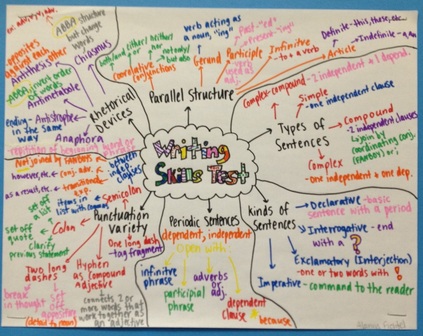 Writing
Skills Test
Rhetorical
Devices
Chiasmus
ABBA structure
but change
words
Antithesis
opposites
against each
other
Antimetabole
ABBA invert order
of words
Antistrophe
ending
in the same
way
Anaphora
repetition of beginning word or phrase
Parallel Structure
correlative
conjunctions
both/and
either/or
neither/nor
not only/
but also
Gerund
verb acting as
a noun, "ing"
Participle
Past-"ed"
Present-"ing"
verb
used as
adj.
Infinitive
to + a verb
Article
Definite-this, these, etc..
Indefinite-a, an
Types of
Sentences
Complex-compound-2 independent + 1 depend.
Simple
-one independent clause
Compound
-2 independent
clauses
joined by
coordinating conj.
(FANBOYS) or ;
Complex
-one independent + one dep.
Kinds of
Sentences
Declarative-basic
sentence with a period
Interrogative-end
with a ?
Exclamatory (Interjection)
-one or two words with !
Imperative-command to the reader
Periodic Sentences
dependent, independent
open with:
infinitive
phrase
participial
phrase
adverbs
or adj.
dependent
clause
because
Punctuation
variety
Semicolon
between
indep.
clauses
Not joined by FANBOYS
however, etc
as a result, etc
conj. adv.
transitional
exp.
items in
list with commas
Colon
set off
a list
set off
quote
clarify
previous statement
One long dash
tag fragment
Two long
dashes
break
in thought
set off
appositive
(detail to noun)
Hyphen
as Compound
Adjective
connects 2 or
more words that
work together as
an "adjective"